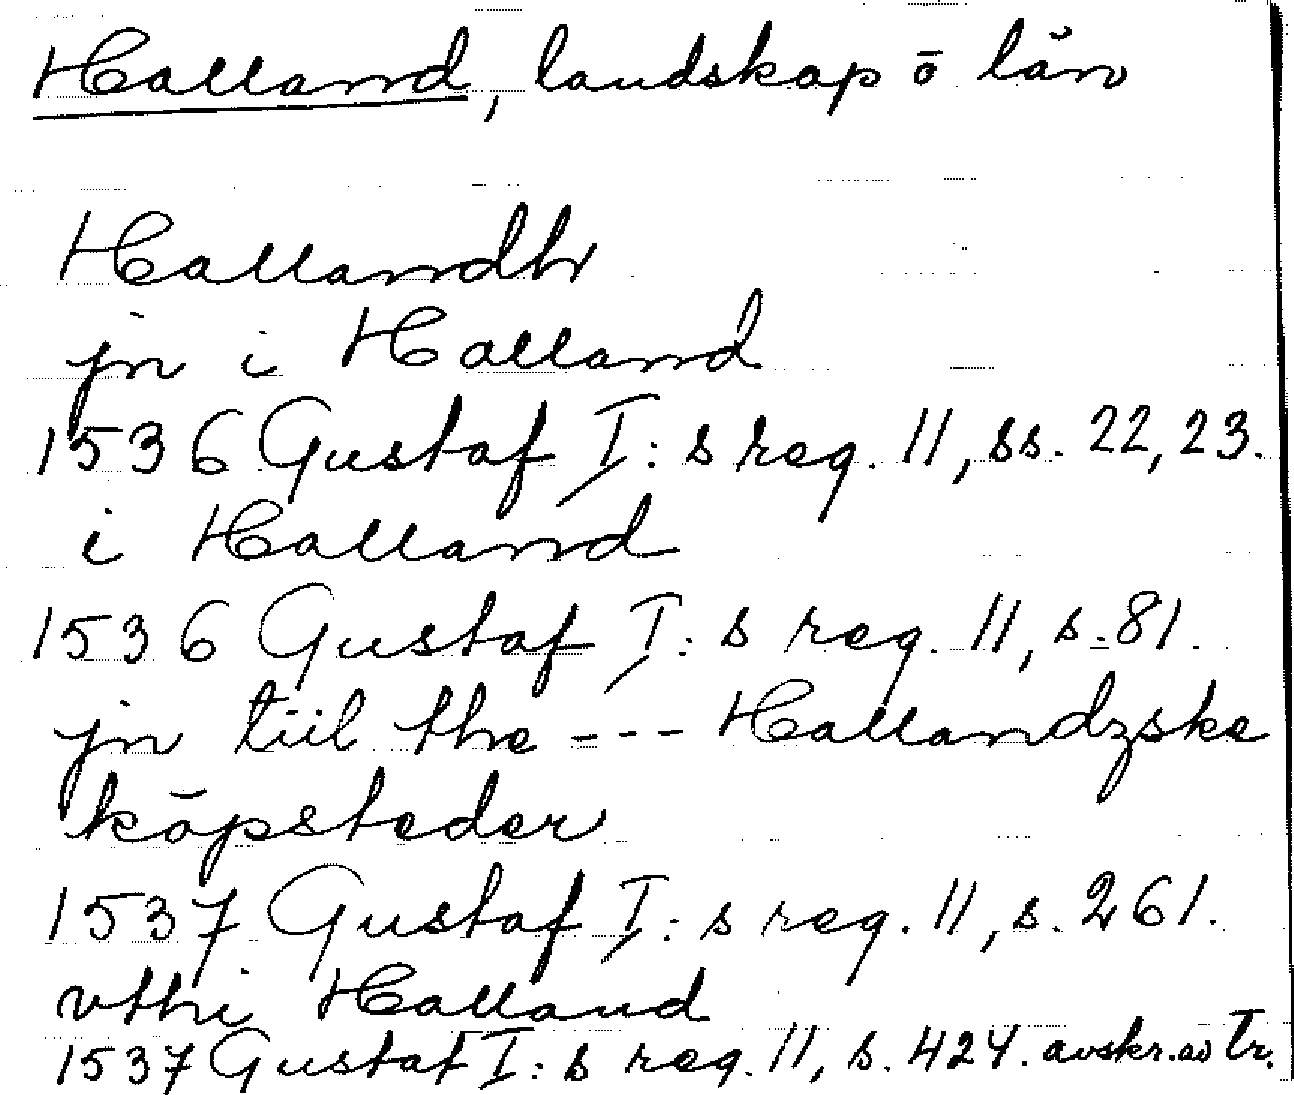 Halland, landskap ō län
Hallandh
jn i Halland
1536 Gustaf I:s reg. 11, ss. 22, 23.
i Halland
1536 Gustaf I:s reg. 11, s. 81.
jn tiil the --- Hallandzske
köpsteder
1537 Gustaf I:s reg. 11, s. 261.
vthi Halland
1537 Gustaf I:s reg. 11, s. 424. avskr. av Tr.